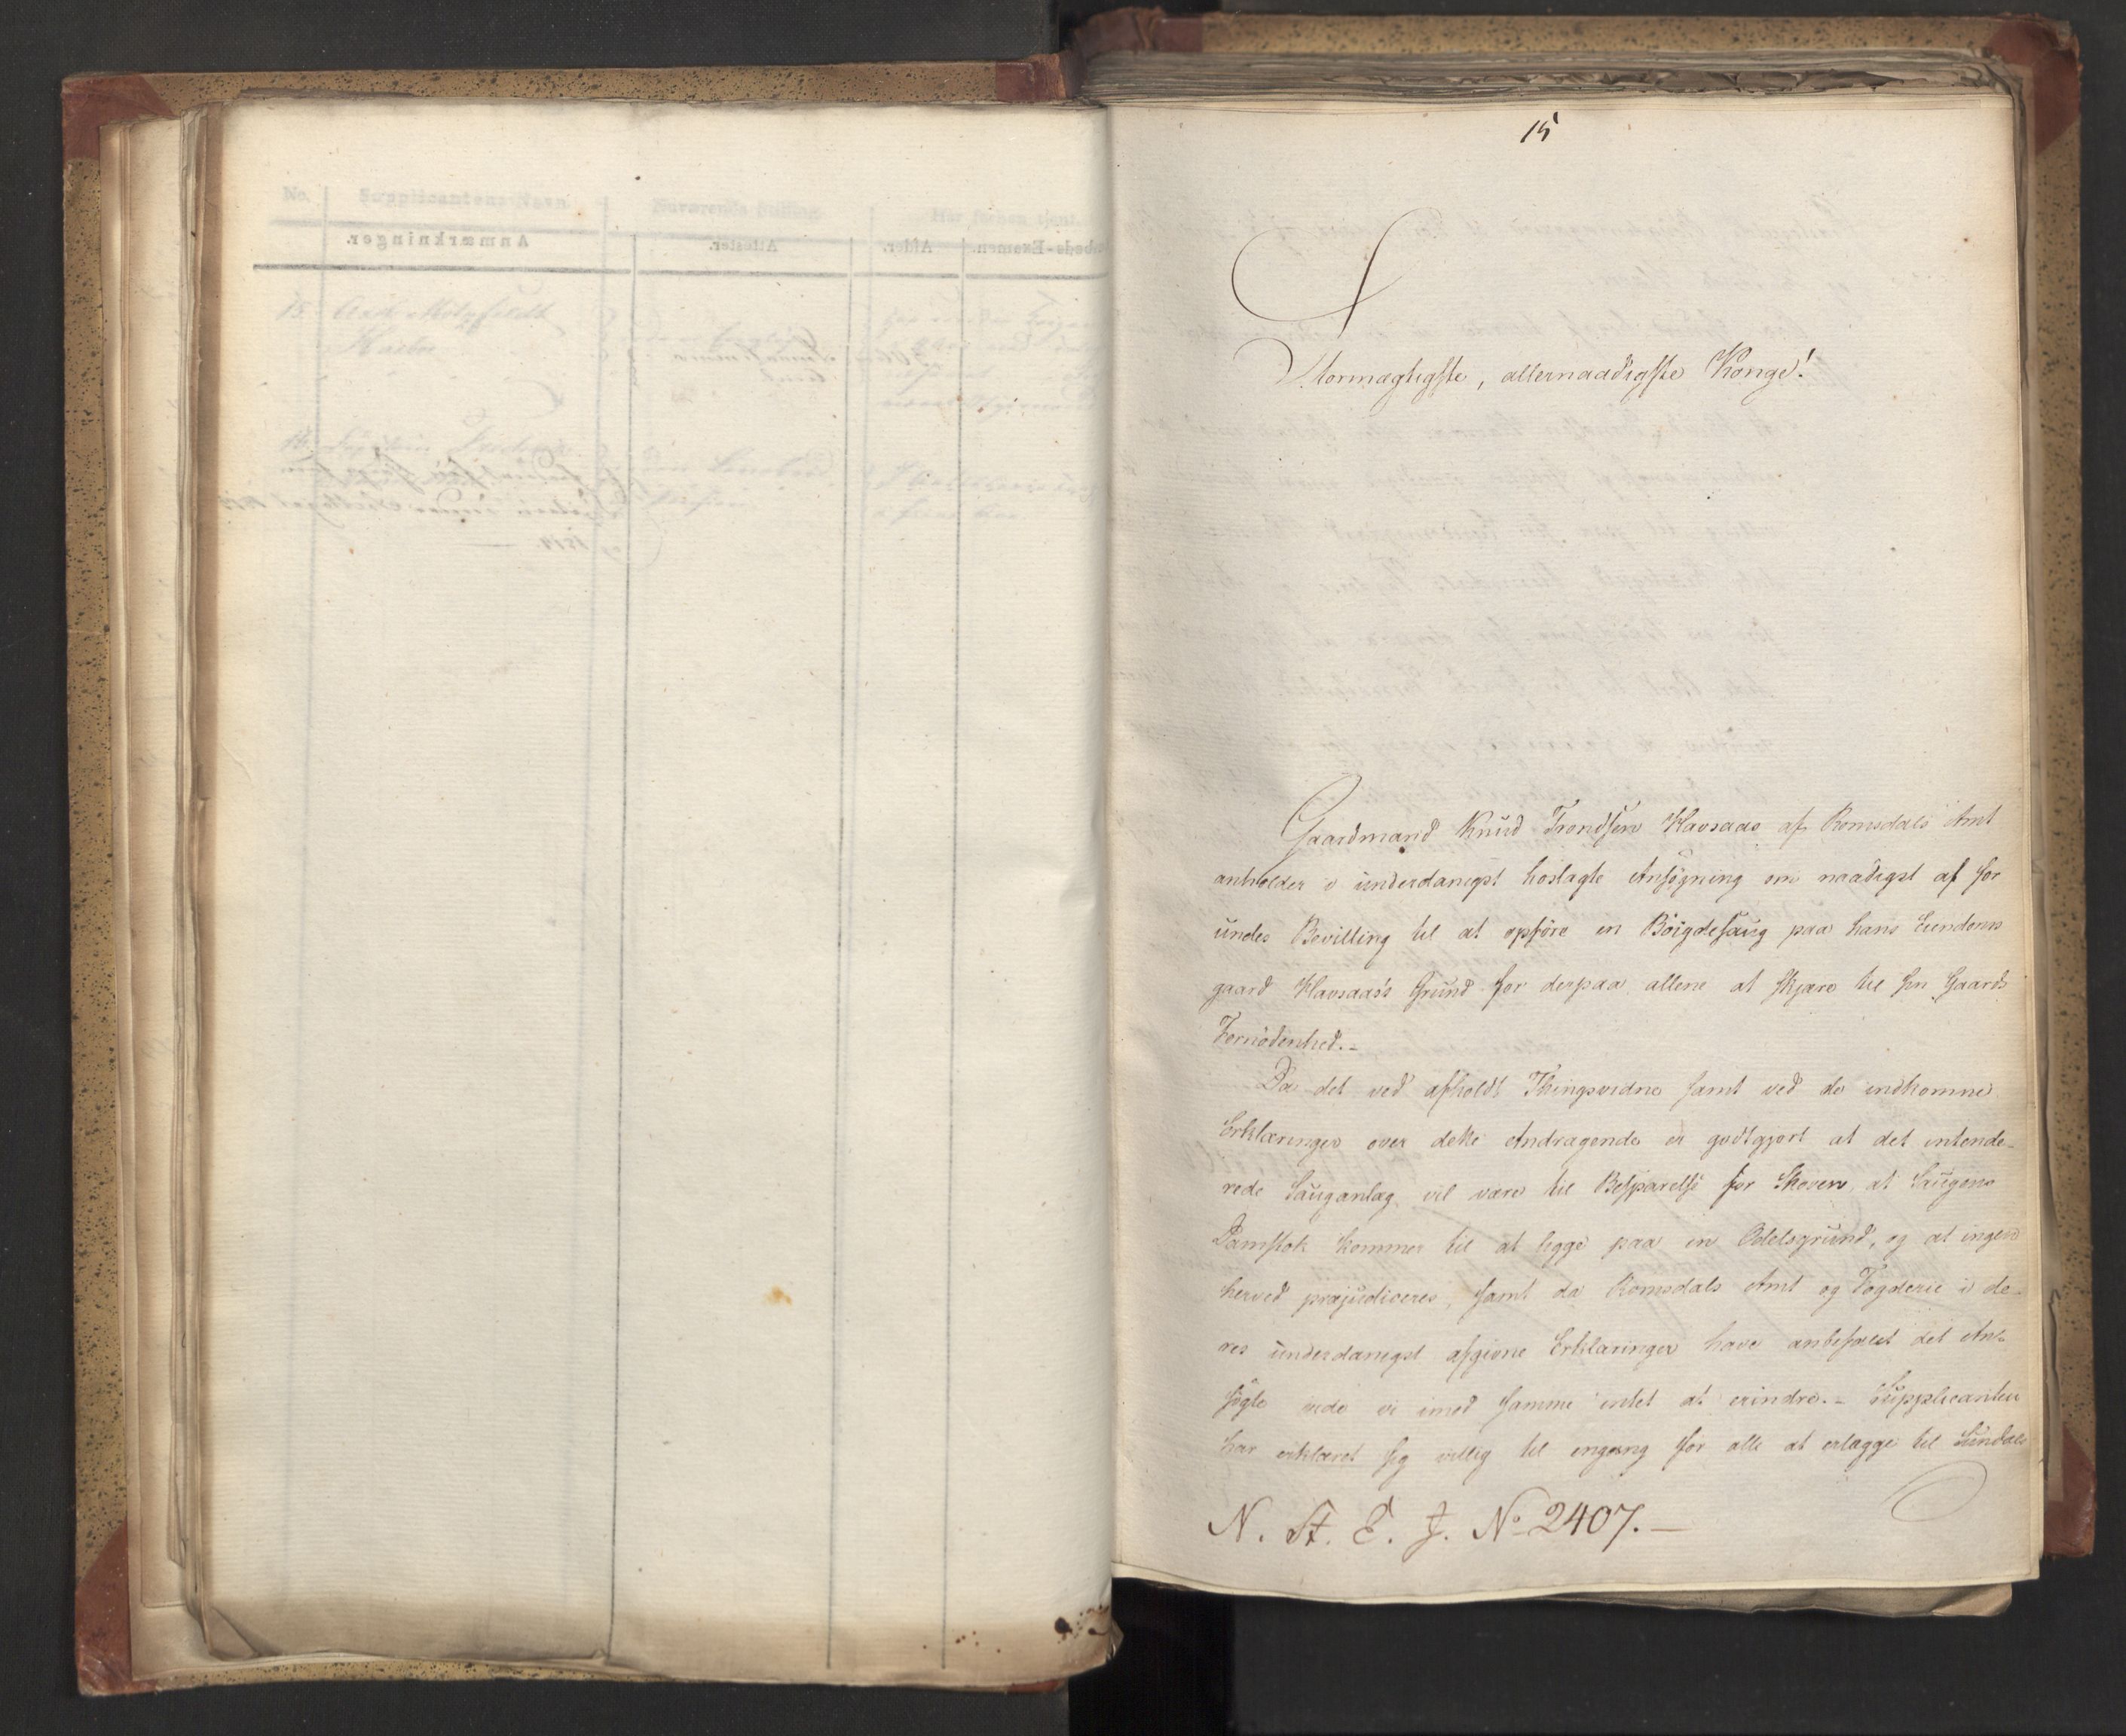 15
Stormægtigste, allernaadigste Konge!
Gaardmand Knud Trondsen Havsaas af Romsdals Amt
anholder i underdanigst hoslagte Ansögning om naadigst at for
undes Bevilling til at opföre en Böigdesaug paa hans Eiendoms
gaard Havsaas's Grund for derpaa allene at skjære til sin Gaards
Fornödenhed.-
Da det ved afholdt Thingsvidne samt ved de indkomne
Erklæringer over dette Andragende er godtgjort at det intende-
rede Sauganlæg vil være til Besparelse for Skoven, at Saugens
Damstok kommer til at ligge paa en Odelsgrund, og at ingen
herved præjudiceres, samt da Romsdals Amt og Fogderie i de-
res underdanigst afgivne Erklæringer have anbefalet det An-
sögte vide vi imod samme intet at erindre.- Supplicanten
har erklæret sig villig til engang for alle at erlægge til Sundals
N. St. E. J. No 2407.-
No.
Supplicantens Navn
Nuværende Stilling
Har forhen tjent
Anmærkninger.
Attester.
Alder.
Examen.